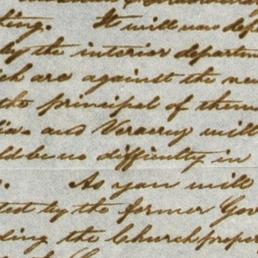 ling. It will use
by the interior departm
ich are against the ne
the principal of them
ia and Veracruz will
ld be no difficulty in
. As you will
ted by the former Gov
ding the Church proper